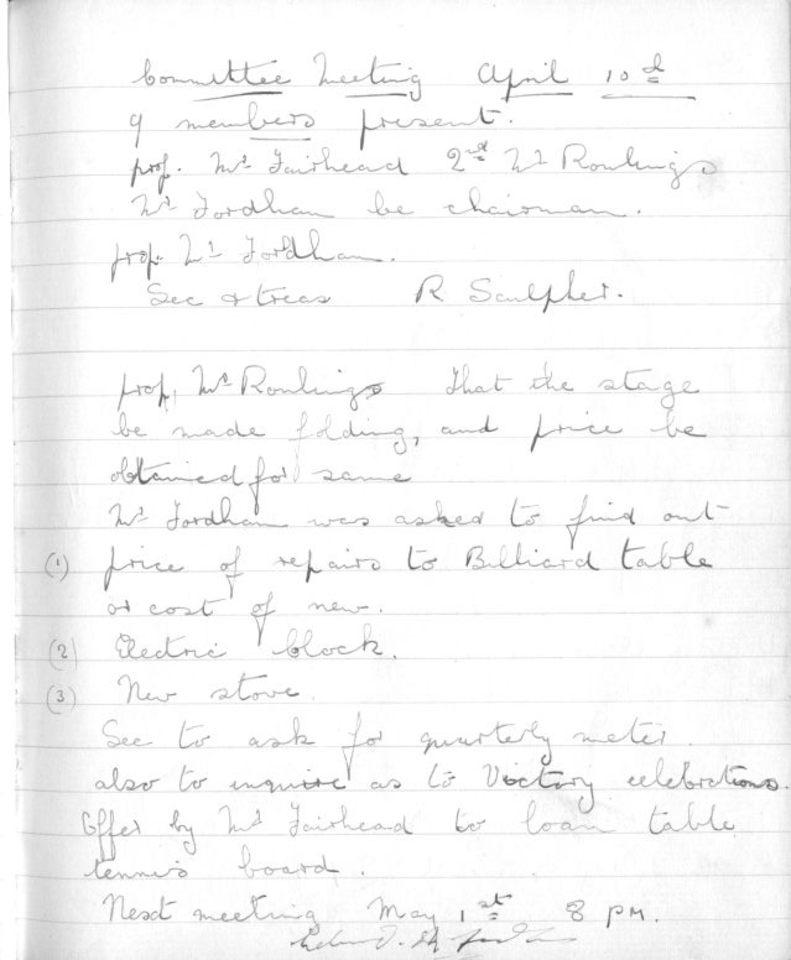 Committee Meeting April 10th
9 members present.
prop. Mr Fairhead 2nd Mr Rowlings
Mr Fordham be chairman.
prop. Mr Fordham.
Sec & treas R Saulpher.
prop, Mr Rowlings that the stage
be made folding, and price be
obtained for same
Mr Fordham was asked to find out
(1) price of repairs to Billiard table
or cost of new.
(2) Electric block.
(3) New stove.
See to ask for quarterly meter.
also to inquire as to Victory celebrations.
Offer by Mr Fairhead to loan table
tennis board.
Next meeting May 1st 8 PM.